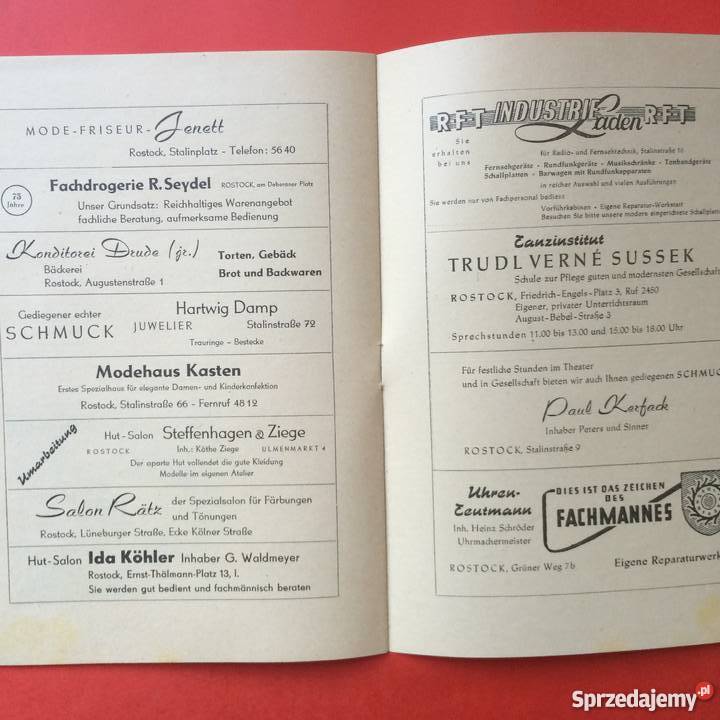 MODE-FRISEUR - Jenett
Rostock, Stalinplatz - Telefon: 56 40
75 Jahre
Fachdrogerie R. Seydel ROSTOCK, am Doberaner Platz
Unser Grundsatz: Reichhaltiges Warenangebot
fachliche Beratung, aufmerksame Bedienung
Konditorei Drude (jr.)
Bäckerei
Rostock, Augustenstraße 1
Torten, Gebäck
Brot und Backwaren
Gediegener echter
SCHMUCK
Hartwig Damp
JUWELIER Stalinstraße 72
Trauringe - Bestecke
Modehaus Kasten
Erstes Spezialhaus für elegante Damen- und Kinderkonfektion
Rostock, Stalinstraße 66 - Fernruf 48 12
Umarbeitung
Hut-Salon Steffenhagen & Ziege
ROSTOCK Inh.: Käthe Ziege ULMENMARKT 4
Der aparte Hut vollendet die gute Kleidung
Modelle im eigenen Atelier
Salon Rätz der Spezialsalon für Färbungen
und Tönungen
Rostock, Lüneburger Straße, Ecke Kölner Straße
Hut-Salon Ida Köhler Inhaber G. Waldmeyer
Rostock, Ernst-Thälmann-Platz 13, I.
Sie werden gut bedient und fachmännisch beraten
RFT INDUSTRIE Laden RFT
Sie
erhalten
bei uns
für Radio- und Fernsehtechnik, Stalinstraße 16
Fernsehgeräte - Rundfunkgeräte - Musikschränke - Tonbandgeräte
Schallplatten - Barwagen mit Rundfunkapparaten
in reicher Auswahl und vielen Ausführungen
Sie werden nur von Fachpersonal bedient
Vorführkabinen - Eigene Reparatur-Werkstatt
Besuchen Sie bitte unsere modern eingerichtete Schallplatt
Tanzinstitut
TRUDL VERNÉ SUSSEK
Schule zur Pflege guten und modernsten Gesellschaf
ROSTOCK, Friedrich-Engels-Platz 3, Ruf 2450
Eigener, privater Unterrichtsraum
August-Bebel-Straße 3
Sprechstunden 11.00 bis 13.00 und 15.00 bis 18.00 Uhr
Für festliche Stunden im Theater
und in Gesellschaft bieten wir auch Ihnen gediegenen SCHMUC
Paul Kerfack
Inhaber Peters und Sinner
ROSTOCK, Stalinstraße 9
Uhren-
Teutmann
Inh. Heinz Schröder
Uhrmachermeister
DIES IST DAS ZEICHEN
DES
FACHMANNES
ROSTOCK, Grüner Weg 7b
Eigene Reparaturwerk
Sprzedajemy.pl